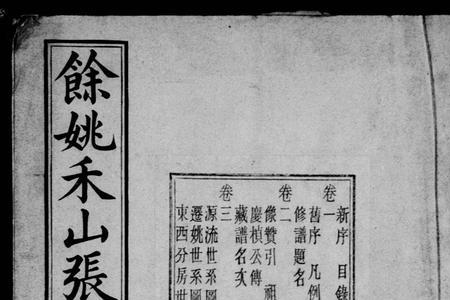 餘姚禾山張
新序 目錄
卷一
舊序 凡例
修譜題名
卷二
像贊引 祖
慶楨公傳
藏譜名次
卷三
源流世系圖
遷姚世系圖
東西分房世